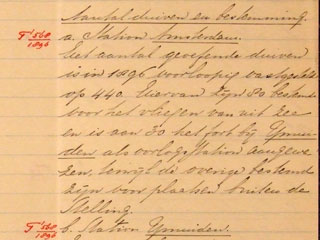 Aantal duiven en bestemming.
Gs 560
1896
a. Station Amsterdam.
Het aantal geoefende duiven
is in 1896 voorloopig vastgesteld
op 440. Hiervan zijn 80 bestemd
voor het vliegen van uit zee
en is van 30 het fort bij Ymui-
den als oorlogsstation aangewe-
zen, terwijl de overige bestemd
zijn voor plaatsen buiten de
Stelling.
b. Station Ymuiden.
1896